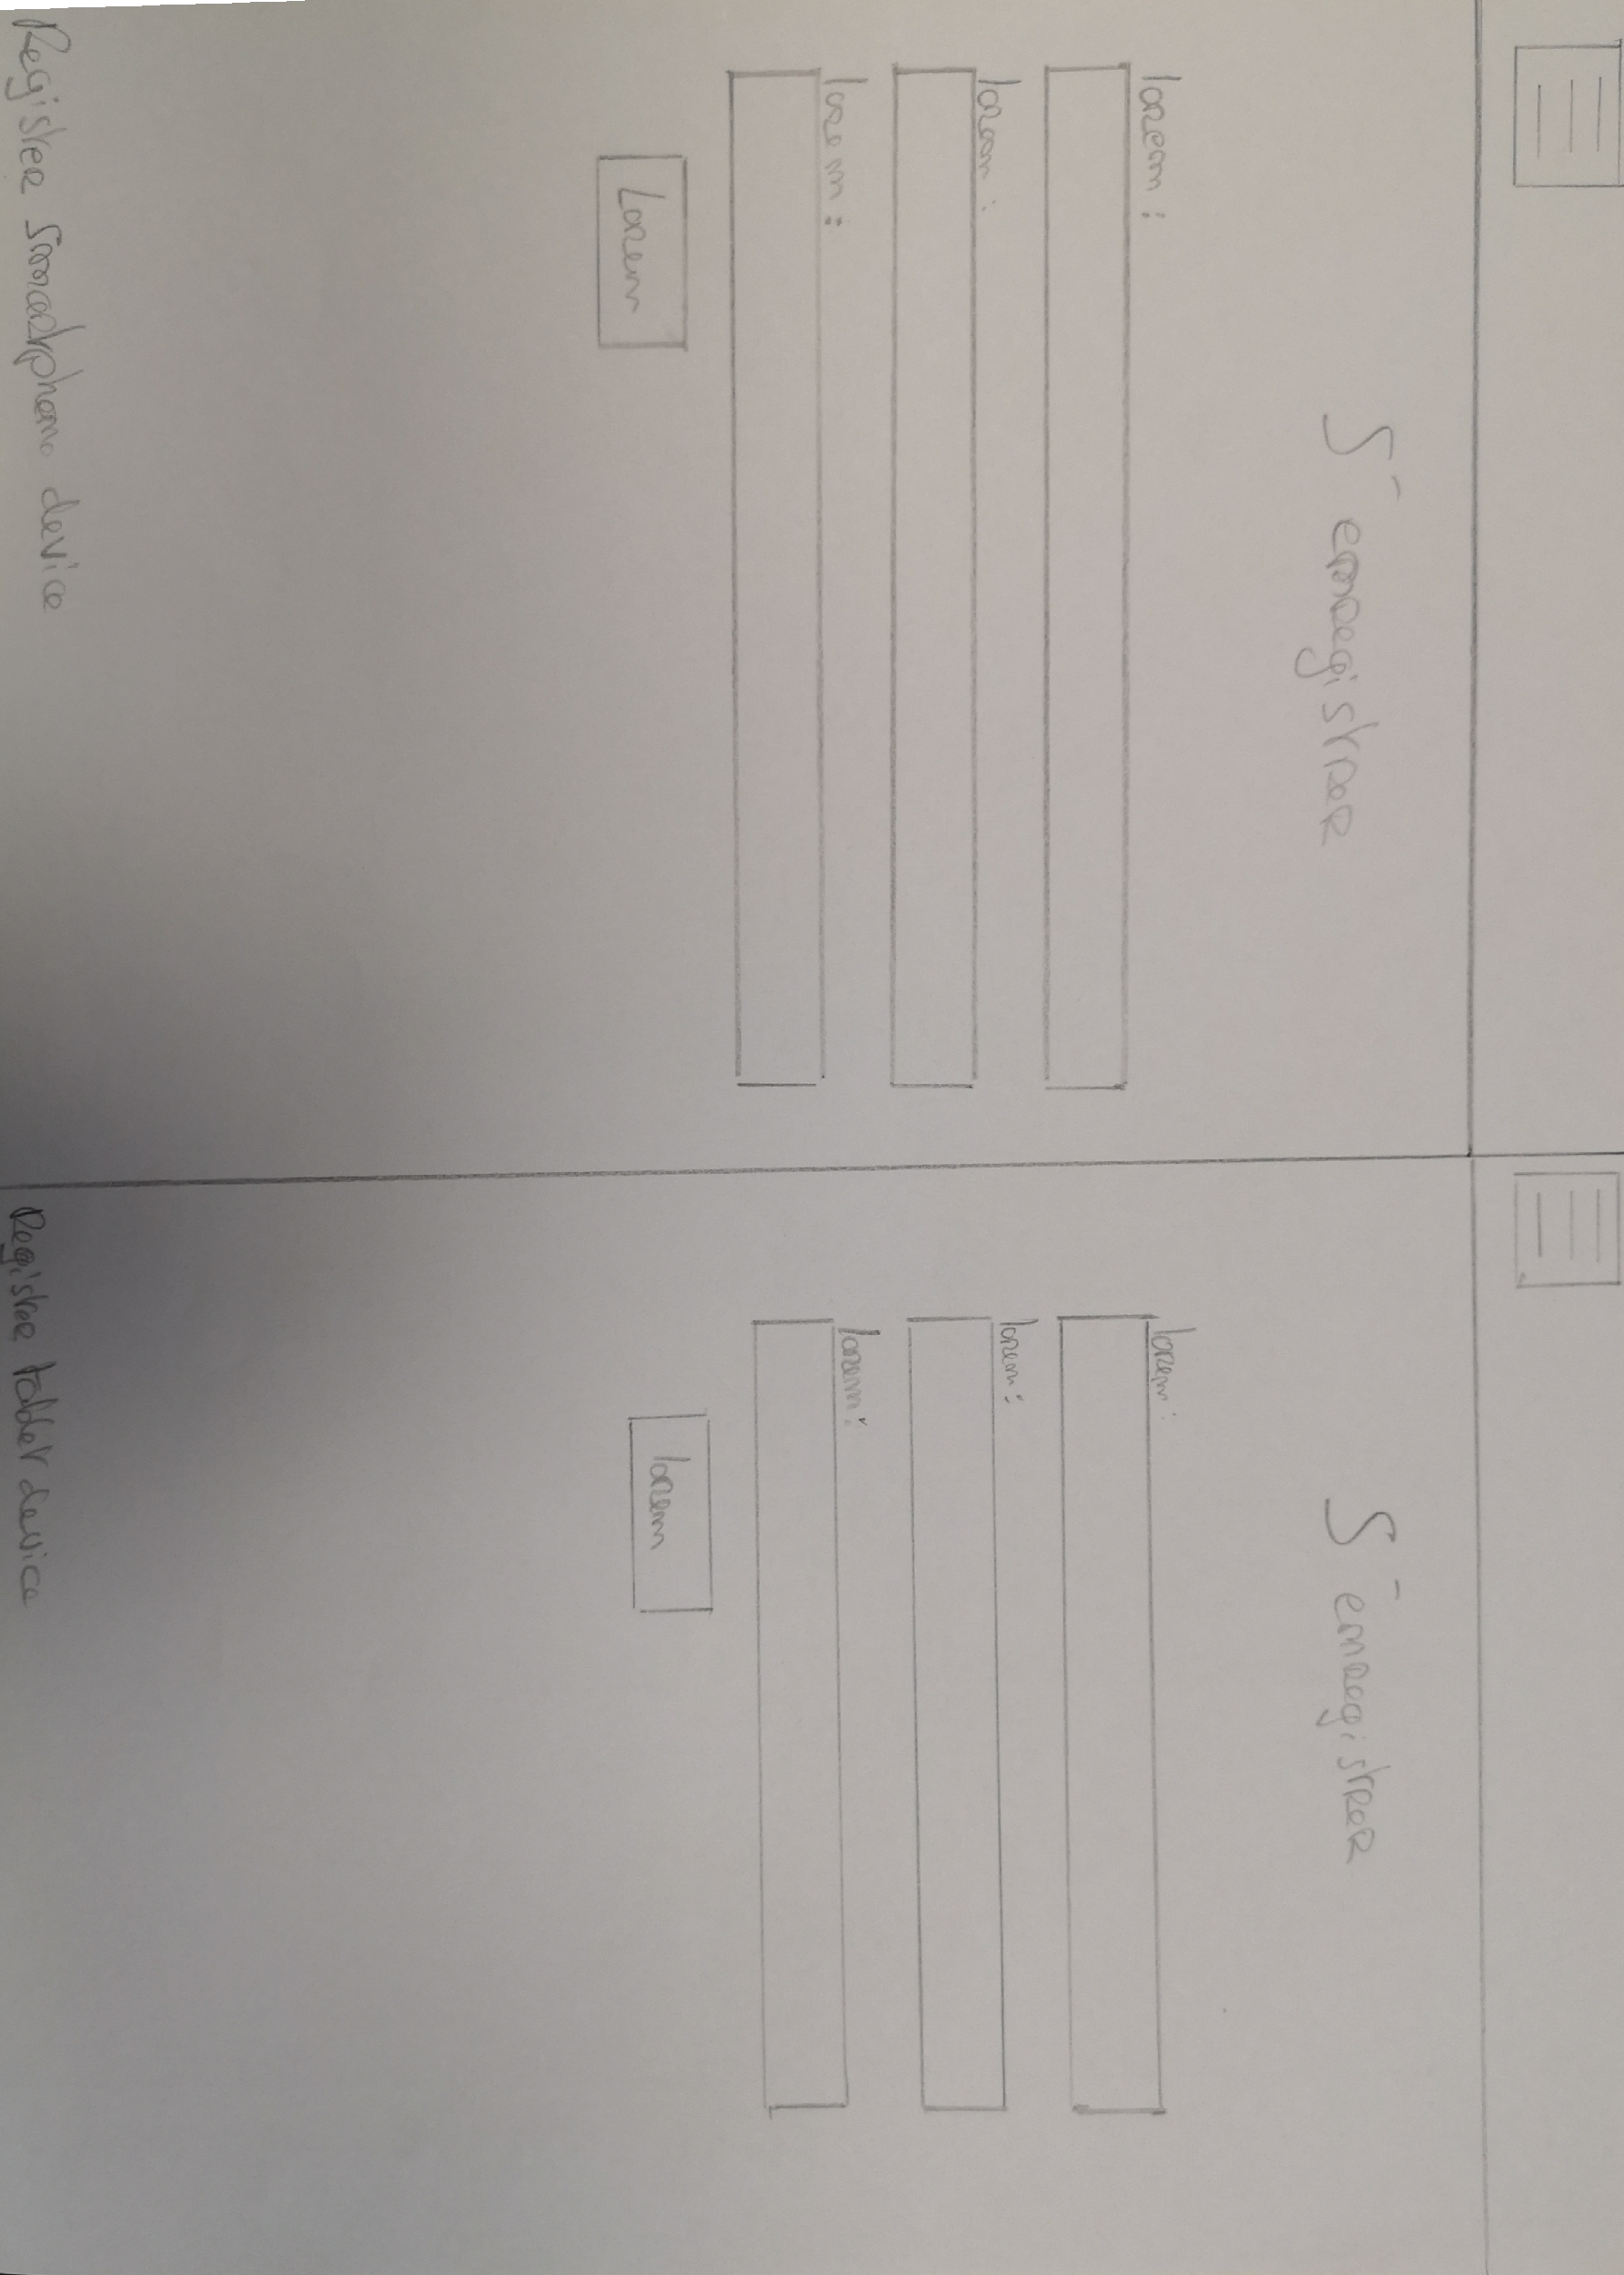 S'enregistrer
lorem :
lorem :
lorem :
Lorem
Register smartphone device
S'enregistrer
lorem :
lorem :
lorem :
lorem
Register tablet device